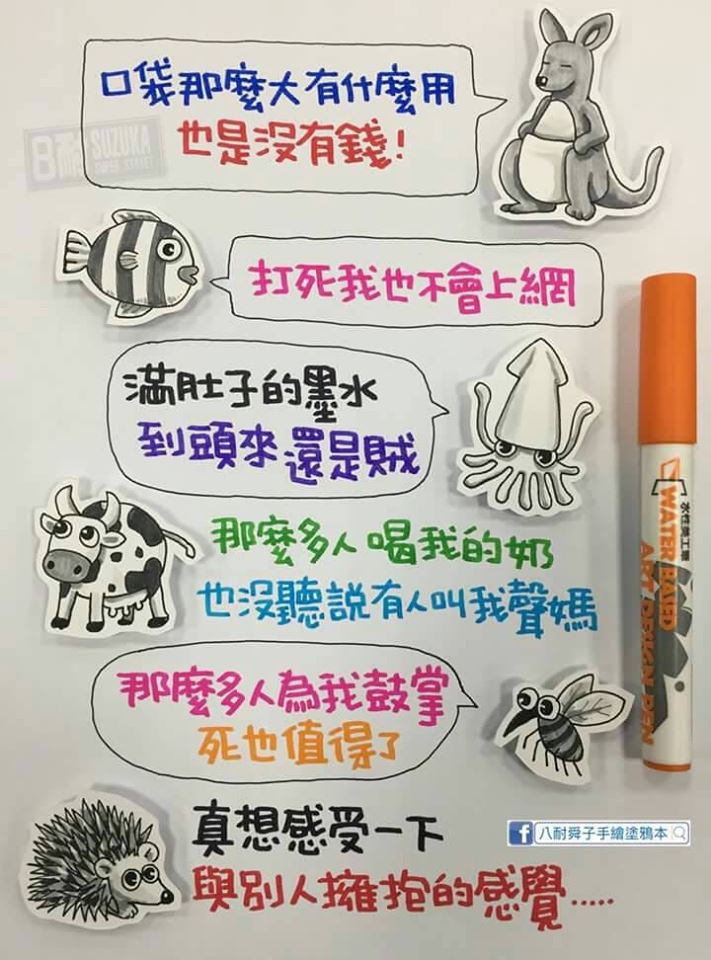 口袋那麼大有什麼用
也是沒有錢!
8耐 SUZUKA
打死我也不會上網
滿肚子的墨水
到頭來還是賊
那麼多人喝我的奶
也沒聽說有人叫我聲媽
那麼多人為我鼓掌
死也值得了
真想感受一下
與別人擁抱的感覺.....
WATER BASED
ART DESIGN PEN
f 八耐舜子手繪塗鴉本